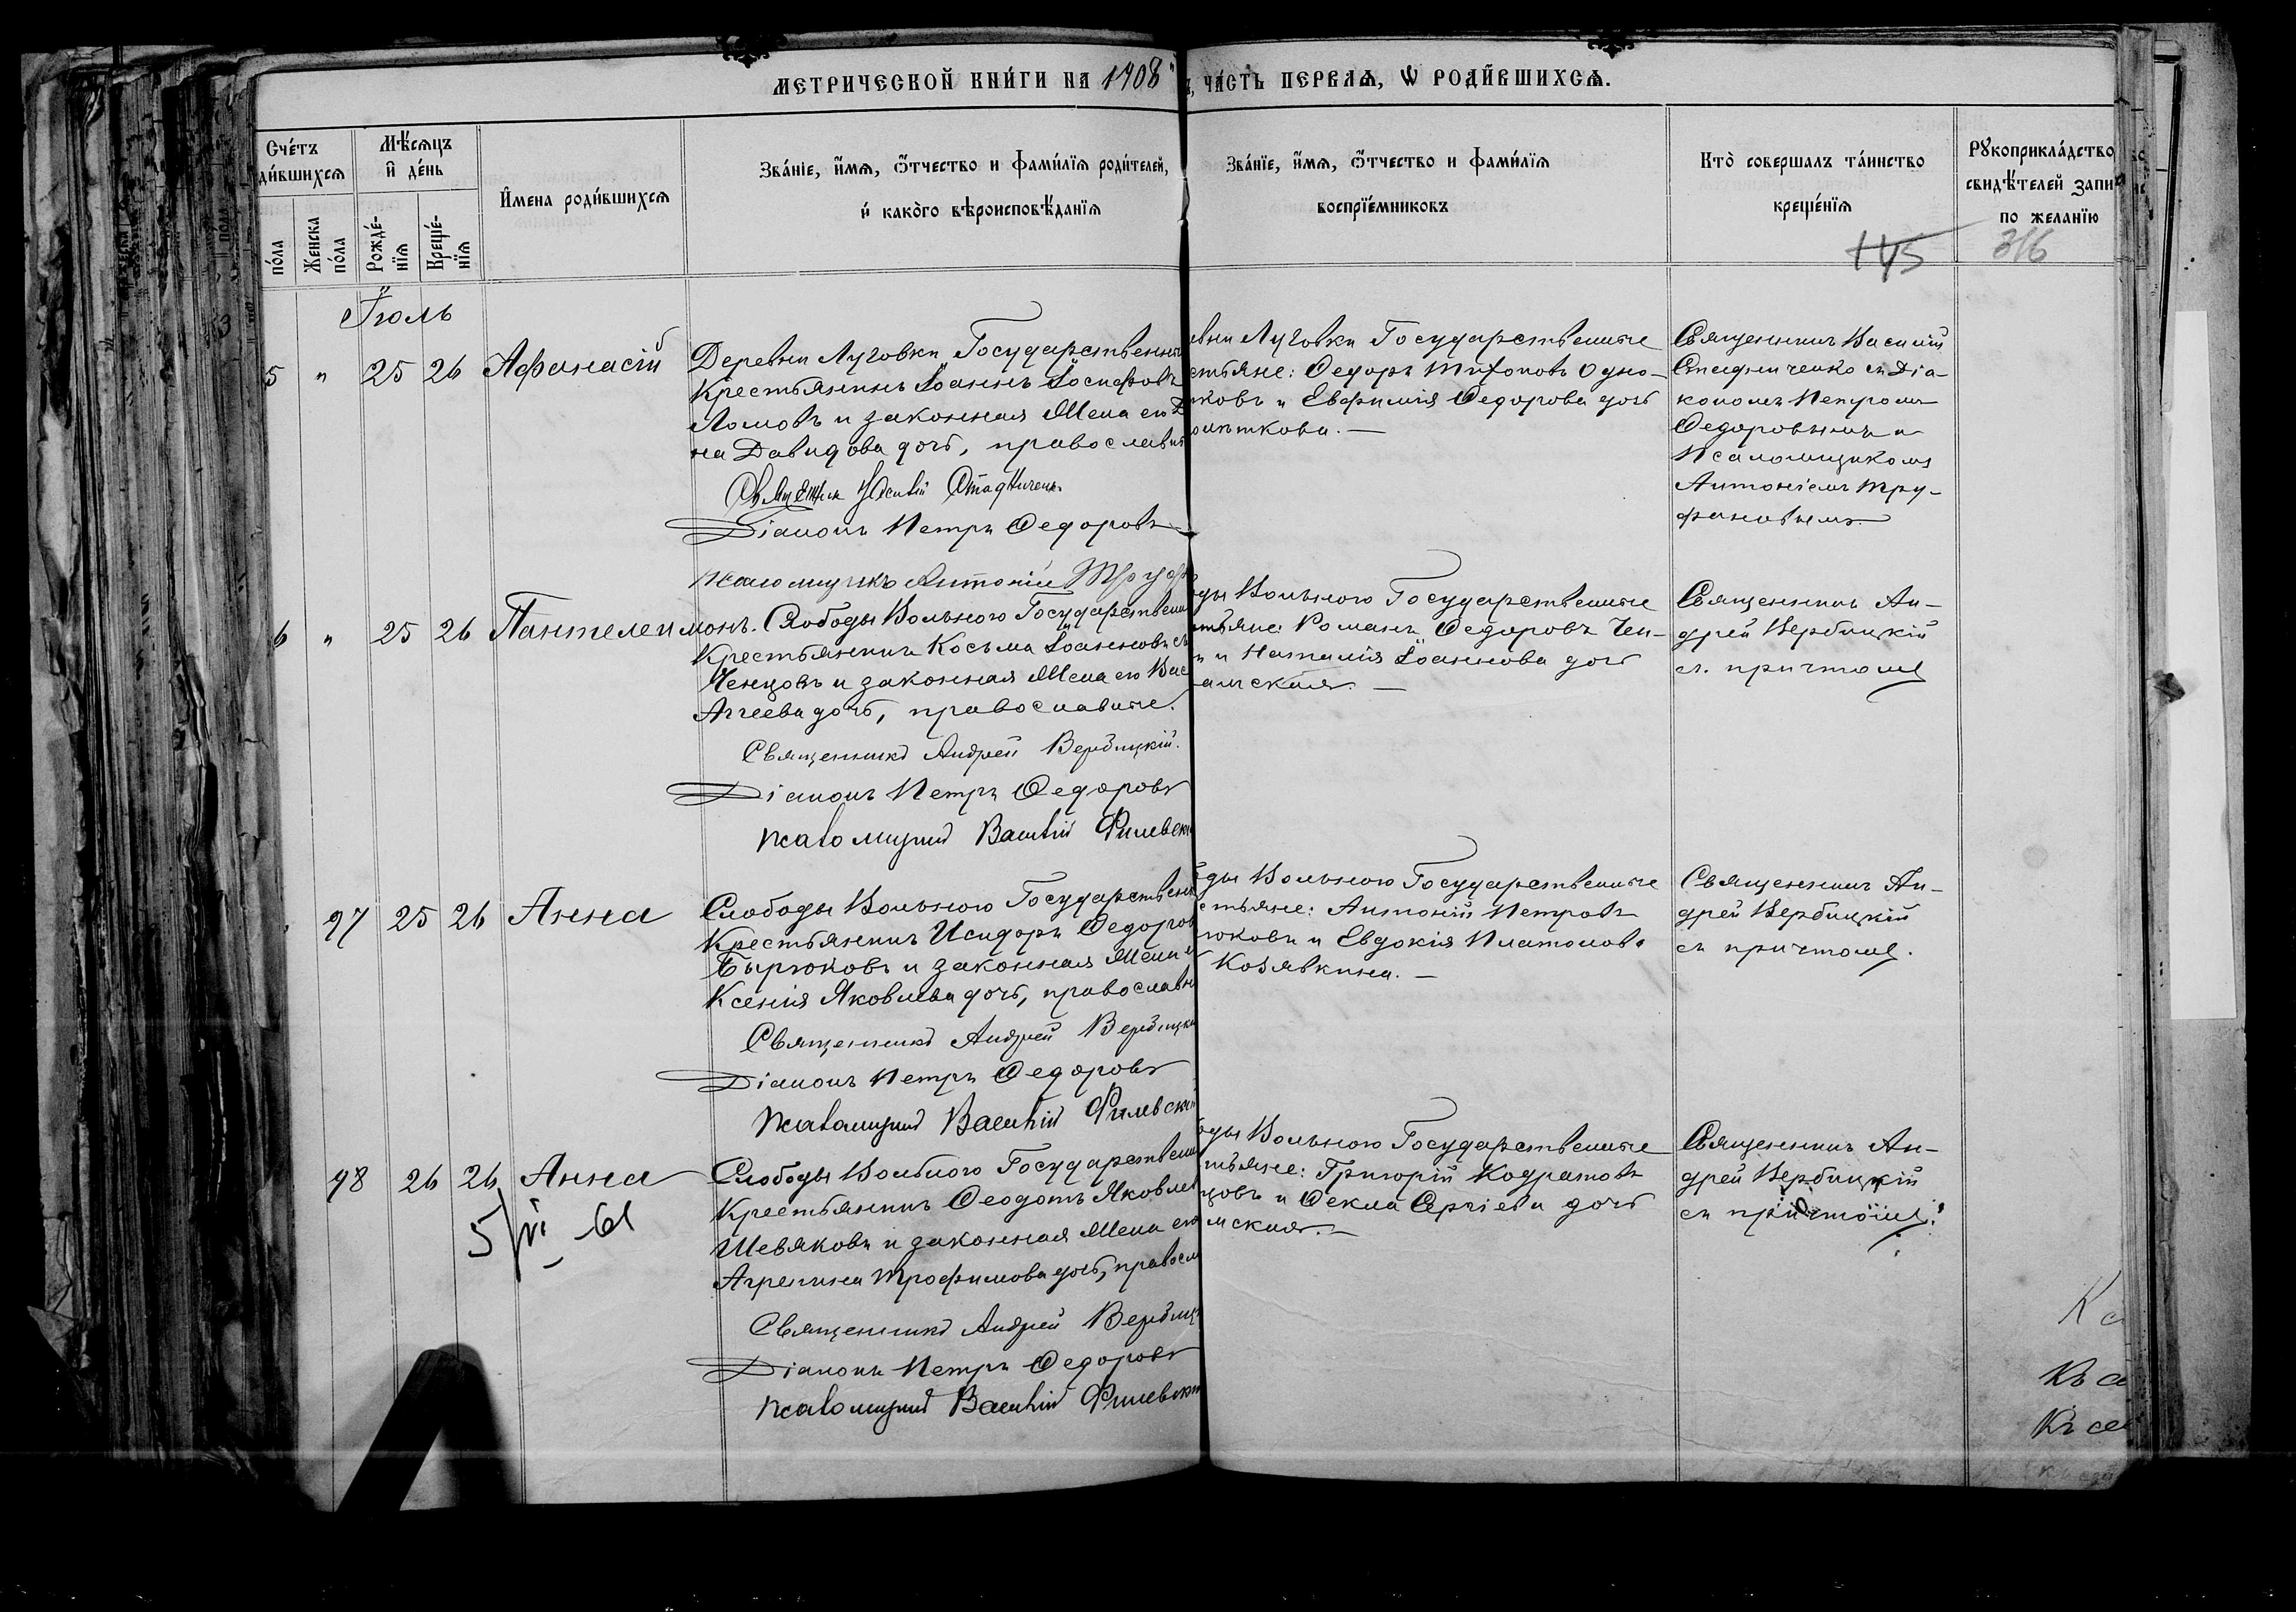 МЕТРИЧЕСКОЙ КНИ́ГИ НА 1908
ЧА́СТЬ ПЕРВАѦ, Ѡ РОДИ́ВШИХСѦ.
Сче́тъ
ди́вшихсѧ
Мѣ́сѧцъ
и де́нь
И́мена роди́вшихсѧ
Зва́нїе, и́мѧ, ѻ҆́тчество и фами́лїѧ роди́телей,
и како́го вѣроисповѣ́данїѧ
Зва́нїе, и́мѧ, ѻ҆́тчество и фами́лїѧ
воспрїе́мниковъ
Кто̀ совершалъ та́инство
креще́нїѧ
Рꙋкоприкла́дство
свидѣ́телей запи
по жела́нїю
по́ла
Женска по́ла
Рожде́-нїѧ
Креще́-нїѧ
145
316
Іюль
5 " 25 26 Аѳанасій
Деревни Луговки Государственн
Крестьянинъ Іоаннъ Іосифовъ
Ломовъ и законная жена его
на Давидова дочь, православн
Священник Василій Стадниченк
Діаконъ Петръ Ѳедоровъ
Псаломщикъ Антоній Труф
вни Луговки Государственные
стьяне: Ѳедоръ Тихоновъ Одно-
ковъ и Евфимія Ѳедорова дочь
Священникъ Василій
Стадниченко съ Діа-
кономъ Петромъ
Ѳедоровымъ и
Псаломщикомъ
Антоніемъ Тру-
фановымъ.
6 " 25 26 Пантелеимонъ.
Слободы Вольного Государственн
Крестьянинъ Косьма Іоанновъ
Ченцовъ и законная жена его Вас
Аггеева дочь, православные.
Священникъ Андрей Вербицкій.
Діаконъ Петръ Ѳедоровъ
Псаломщикъ Василій Филевск
ды Вольного Государственные
стьяне: Романъ Ѳедоровъ Чен-
и Наталія Іоаннова дочь
амская. —
Священникъ Ан-
дрей Вербицкій
съ причтомъ
97 25 26 Анна
Слободы Вольного Государственн
Крестьянинъ Исидоръ Ѳедоров
Бирюковъ и законная жена
Ксенія Яковлева дочь, православн
Священникъ Андрей Вербицк
Діаконъ Петръ Ѳедоровъ
Псаломщикъ Василій Филевскі
ды Вольного Государственные
стьяне: Антоній Петровъ
рюковъ и Евдокія Платонова
Козявкина. —
Священникъ Ан-
дрей Вербицкій
съ причтомъ.
98 26 26 Анна
5/VI – 61
Слободы Вольного Государственн
Крестьянинъ Ѳеодотъ Яковлев
Шевяковъ и законная жена его
Агрепина Трофимова дочь, правосл
Священникъ Андрей Вербиц
Діаконъ Петръ Ѳедоровъ
Псаломщикъ Василій Филевск
ды Вольного Государственные
стьяне: Григорій Кодратовъ
цовъ и Ѳекла Сергіева дочь
мская. —
Священникъ Ан-
дрей Вербицкій
съ причтомъ.